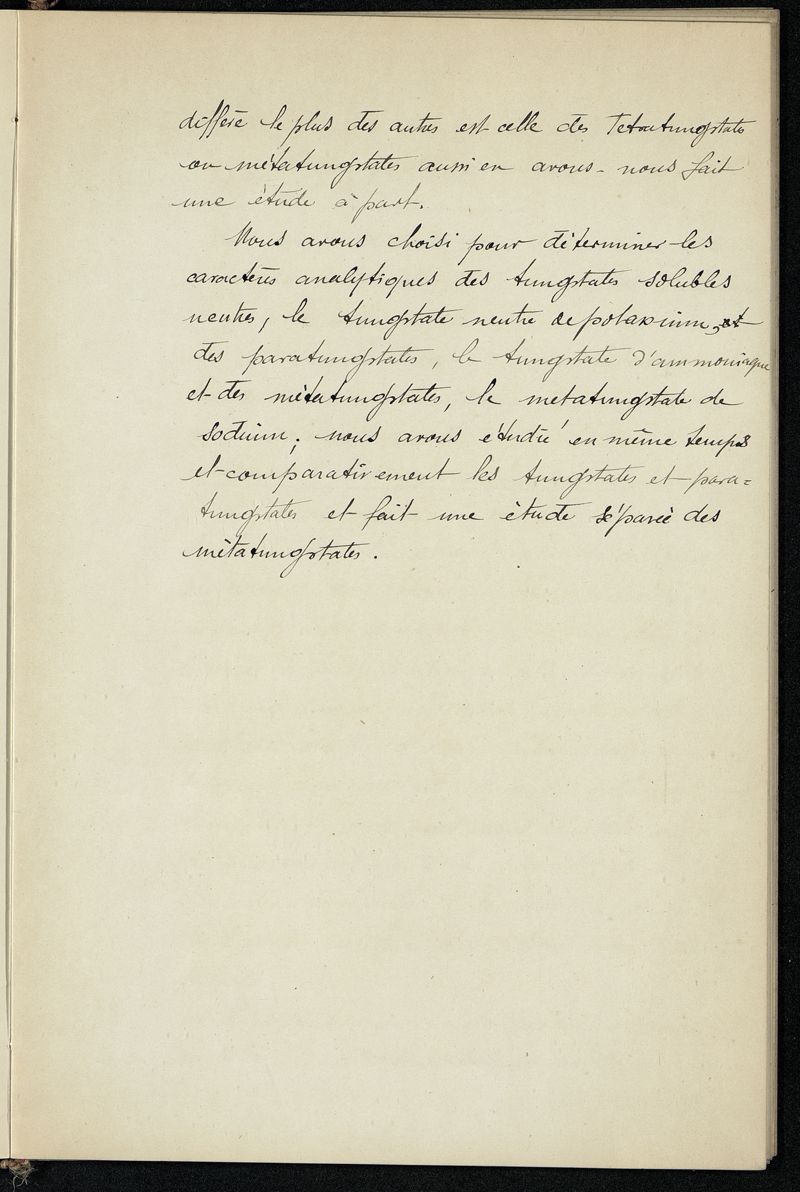 différe le plus des autres est celle des Tetratungstates
ou métatungstates aussi en avons-nous fait
une étude à part.
Nous avons choisi pour déterminer les
caractères analytiques des tungstates solubles
neutres, le tungstate neutre de potassium, et
des paratungstates, le tungstate d'ammoniaque
et des métatungstates, le metatungstate de
sodium; nous avons étudié en même temps
et comparativement les tungstates et para=
tungstates et fait une étude séparée des
métatungstates.